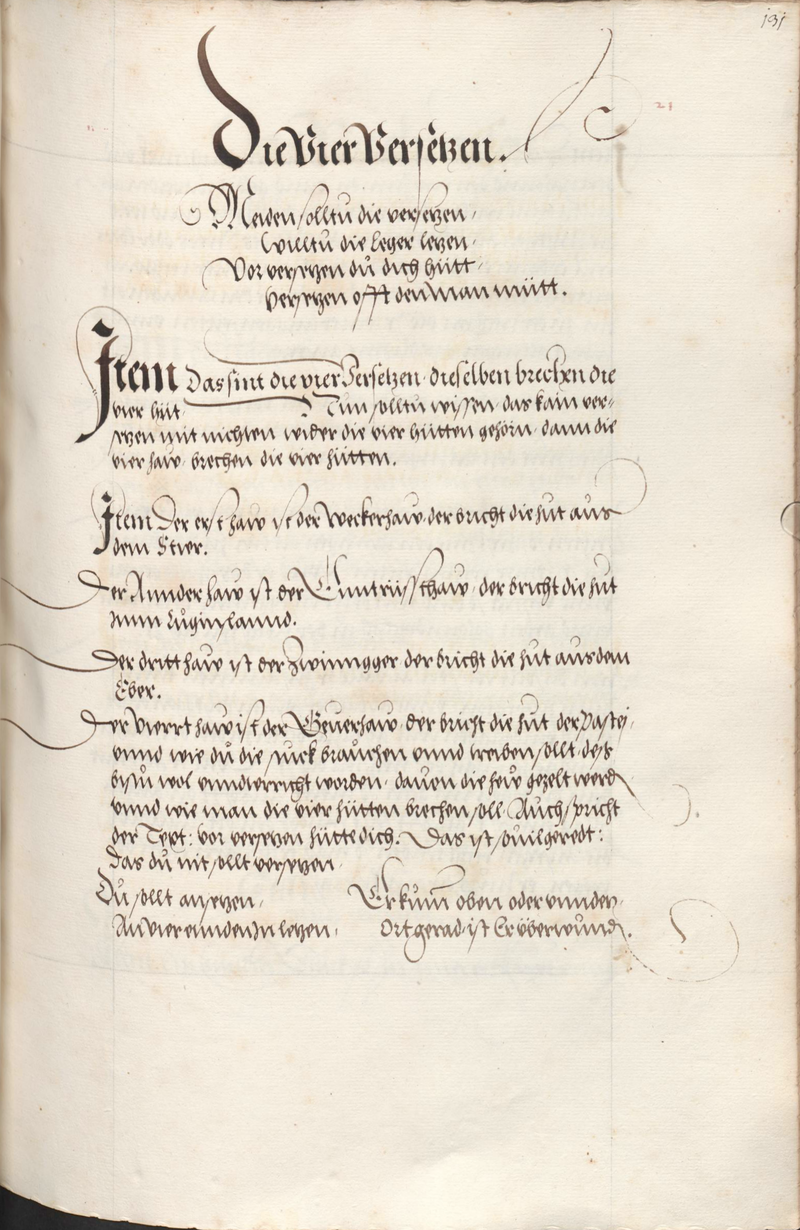 131
21
Die Vier Versetzen.
Meiden solltu die versetzen,
Willtu die leger letzen,
Vor versetzen dŭ dich hŭtt,
versetzen offt den man mŭtt.
Item das sint die vier Versetzen, dieselben brechen die
vier hŭt. Nun solltu wissen, das kain ver=
setzen mit nichten wider die vier hŭtten gehörn, dann die
vier haw, brechen die vier hŭtten.
Item Der erst haw ist der Weckerhaw, der bricht die hut aus
dem Stier.
Der Annder haw ist der
der bricht die hut
Der dritt haw ist der zwinngger der bricht die hut aus dem
Eber.
Der Vierrt haw ist der Geuerhaw, der bricht die hut der Pastej,
vnnd wie dŭ die stuck braŭchen vnnd treiben sollt, des
bistu wol vnnderricht worden, dauon die hew gezelt werd
vnnd wie man die vier hŭtten brechen soll, Auch spricht
der Text: vor versetzen hŭtte dich. Das ist souil geredt:
das dŭ nit sollt versetzen,
Dŭ sollt ansetzen,
An vier ennden In letzen,
Er kŭm oben oder vnnden,
Ort gerad, ist Er vberwŭnd.